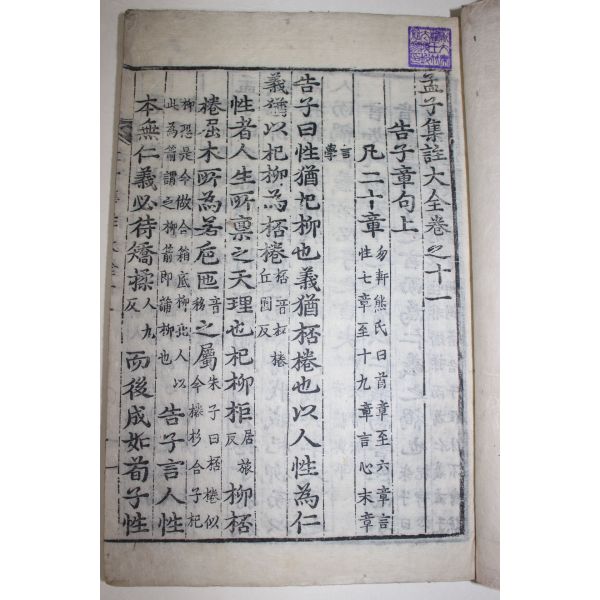 孟子集註大全卷之十一
告子章句上
凡二十章 勿軒熊氏曰首章至六章言性七章至十九章言心末章言學
告子曰性猶杞柳也義猶桮棬也以人性為仁
義猶以杞柳為桮棬 桮音杯棬丘圓反
性者人生所稟之天理也杞柳柜 居旅反 柳桮
棬屈木所為若卮匜 音移 之屬 朱子曰桮棬似今棬杉合子杞
柳恐是今做合箱底柳北人以此為箭謂之柳箭即蒲柳也 告子言人性
本無仁義必待矯揉 人九反 而後成如荀子性